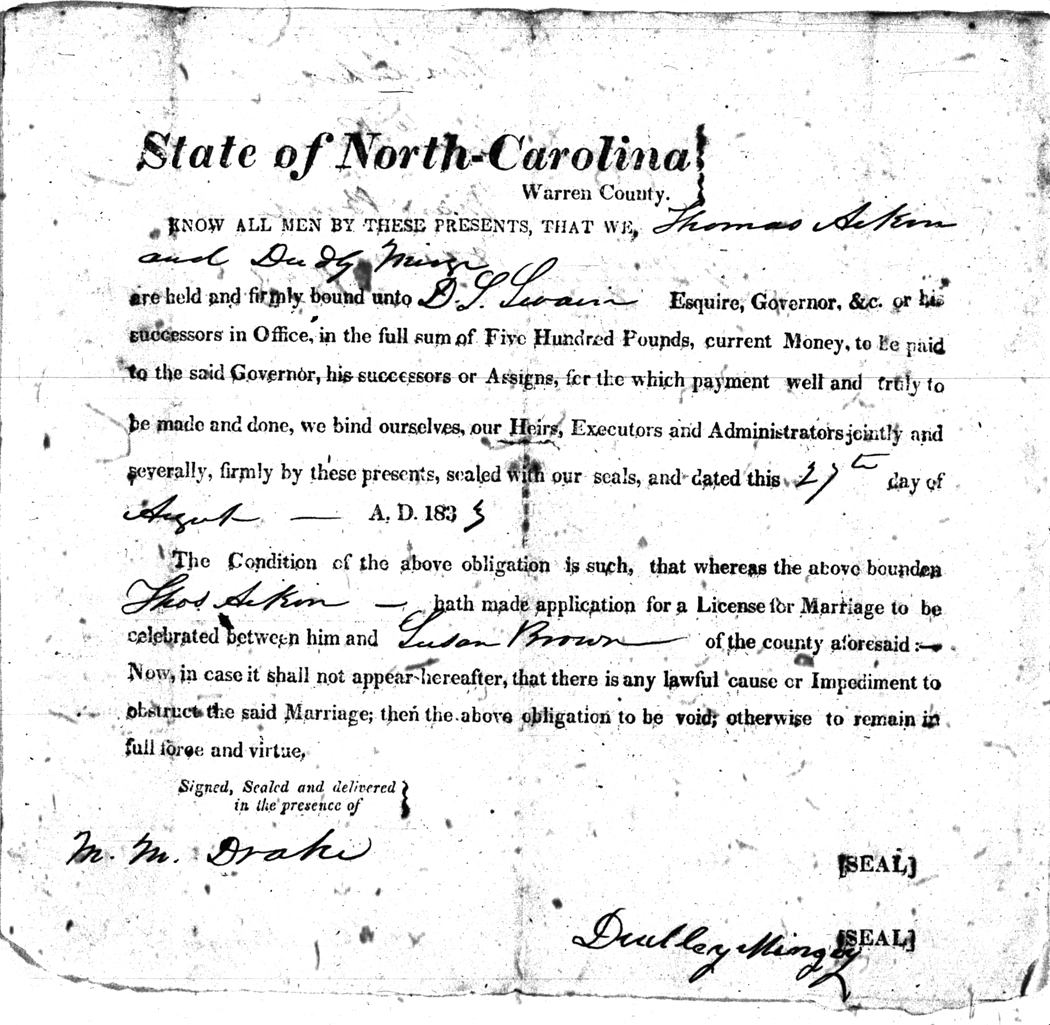 State of North-Carolina
Warren County.
KNOW ALL MEN BY THESE PRESENTS, THAT WE, Thomas Aikin
and Dudly
are held and firmly bound unto D. L. Swain Esquire, Governor, &c. or his
successors in Office, in the full sum of Five Hundred Pounds, current Money, to be paid
to the said Governor, his successors or Assigns, for the which payment well and truly to
be made and done, we bind ourselves, our Heirs, Executors and Administrators jointly and
severally, firmly by these presents, sealed with our seals, and dated this 27th day of
August — A. D. 1833
The Condition of the above obligation is such, that whereas the above bounden
Thos Aikin — hath made application for a License for Marriage to be
celebrated between him and Susan Brown of the county aforesaid:—
Now, in case it shall not appear hereafter, that there is any lawful cause or Impediment to
obstruct the said Marriage; then the above obligation to be void; otherwise to remain in
full force and virtue,
Signed, Sealed and delivered
in the presence of
M. M. Drake
[SEAL]
Dudley [SEAL]